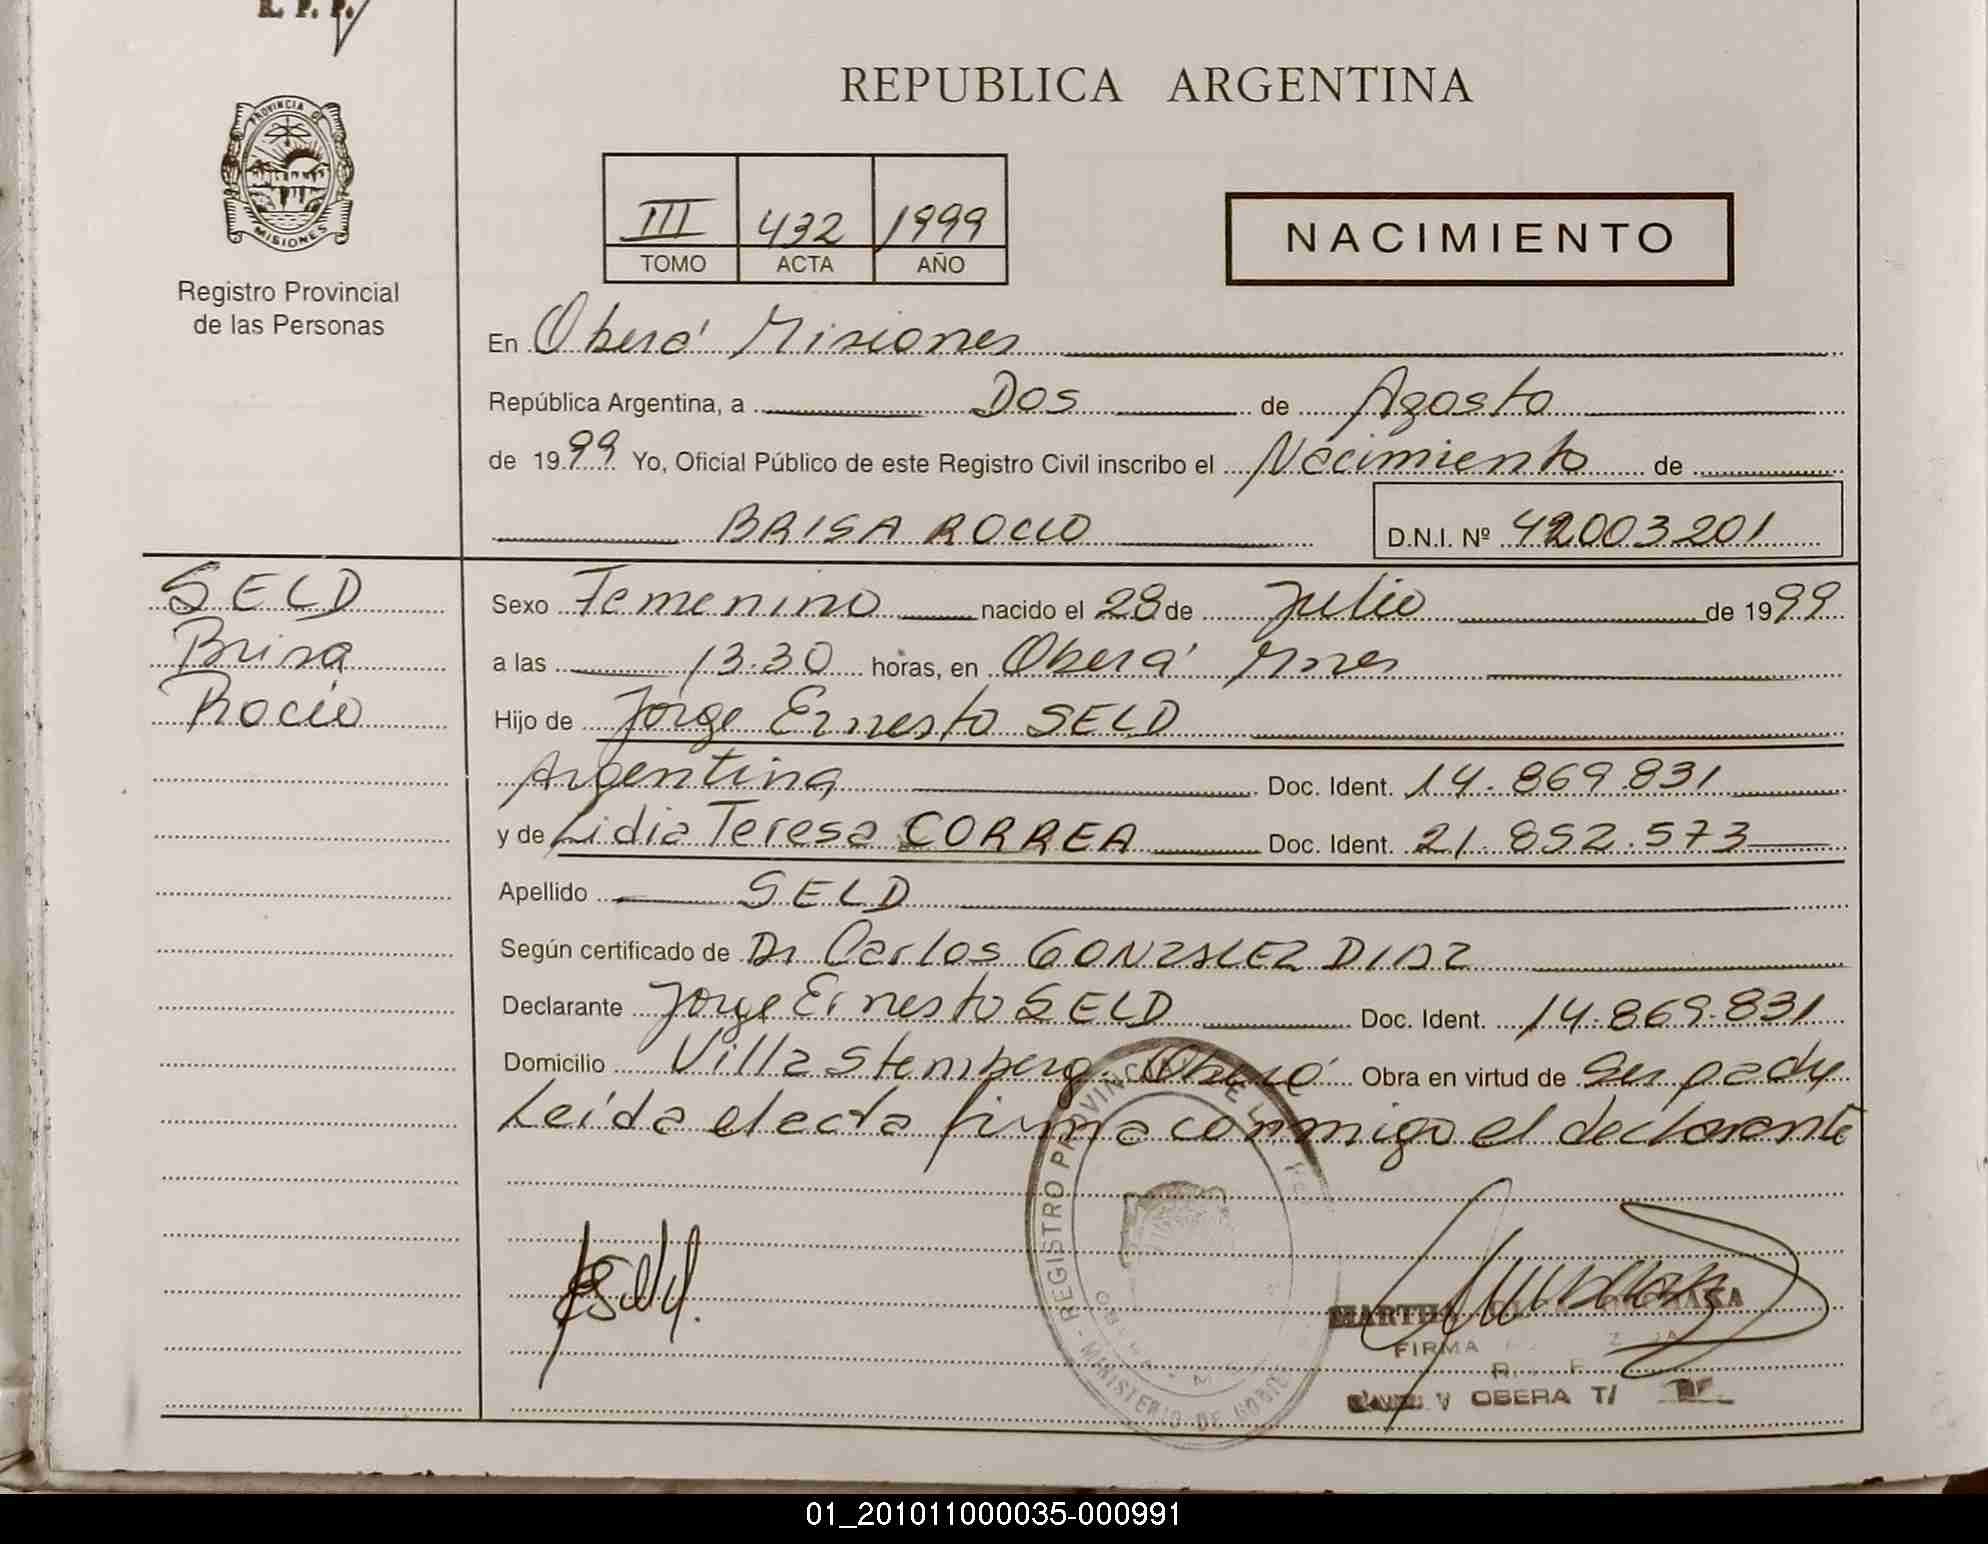 R. P. P.
PROVINCIA DE
MISIONES
Registro Provincial
de las Personas
REPUBLICA ARGENTINA
III 432 1999
TOMO ACTA AÑO
NACIMIENTO
En Oberá Misiones
República Argentina, a Dos de Agosto
de 1999 Yo, Oficial Público de este Registro Civil inscribo el Nacimiento de
BRISA ROCIO D.N.I. Nº 42003201
SELD
Brisa
Rocio
Sexo Femenino nacido el 28 de Julio de 1999
a las 13.30 horas, en Oberá Mnes
Hijo de Jorge Ernesto SELD
Argentina Doc. Ident. 14.869.831
y de Lidia Teresa CORREA Doc. Ident. 21.852.573
Apellido SELD
Según certificado de Dr Carlos GONZALEZ DIAZ
Declarante Jorge Ernesto SELD Doc. Ident. 14.869.831
Domicilio Villa Stemberg Oberá Obra en virtud de Ser padre
Leída el acta firma conmigo el declarante
REGISTRO PROVINCIAL DE
MINISTERIO DE
MARTHA
FIRMA
OBERA T/
01_201011000035-000991